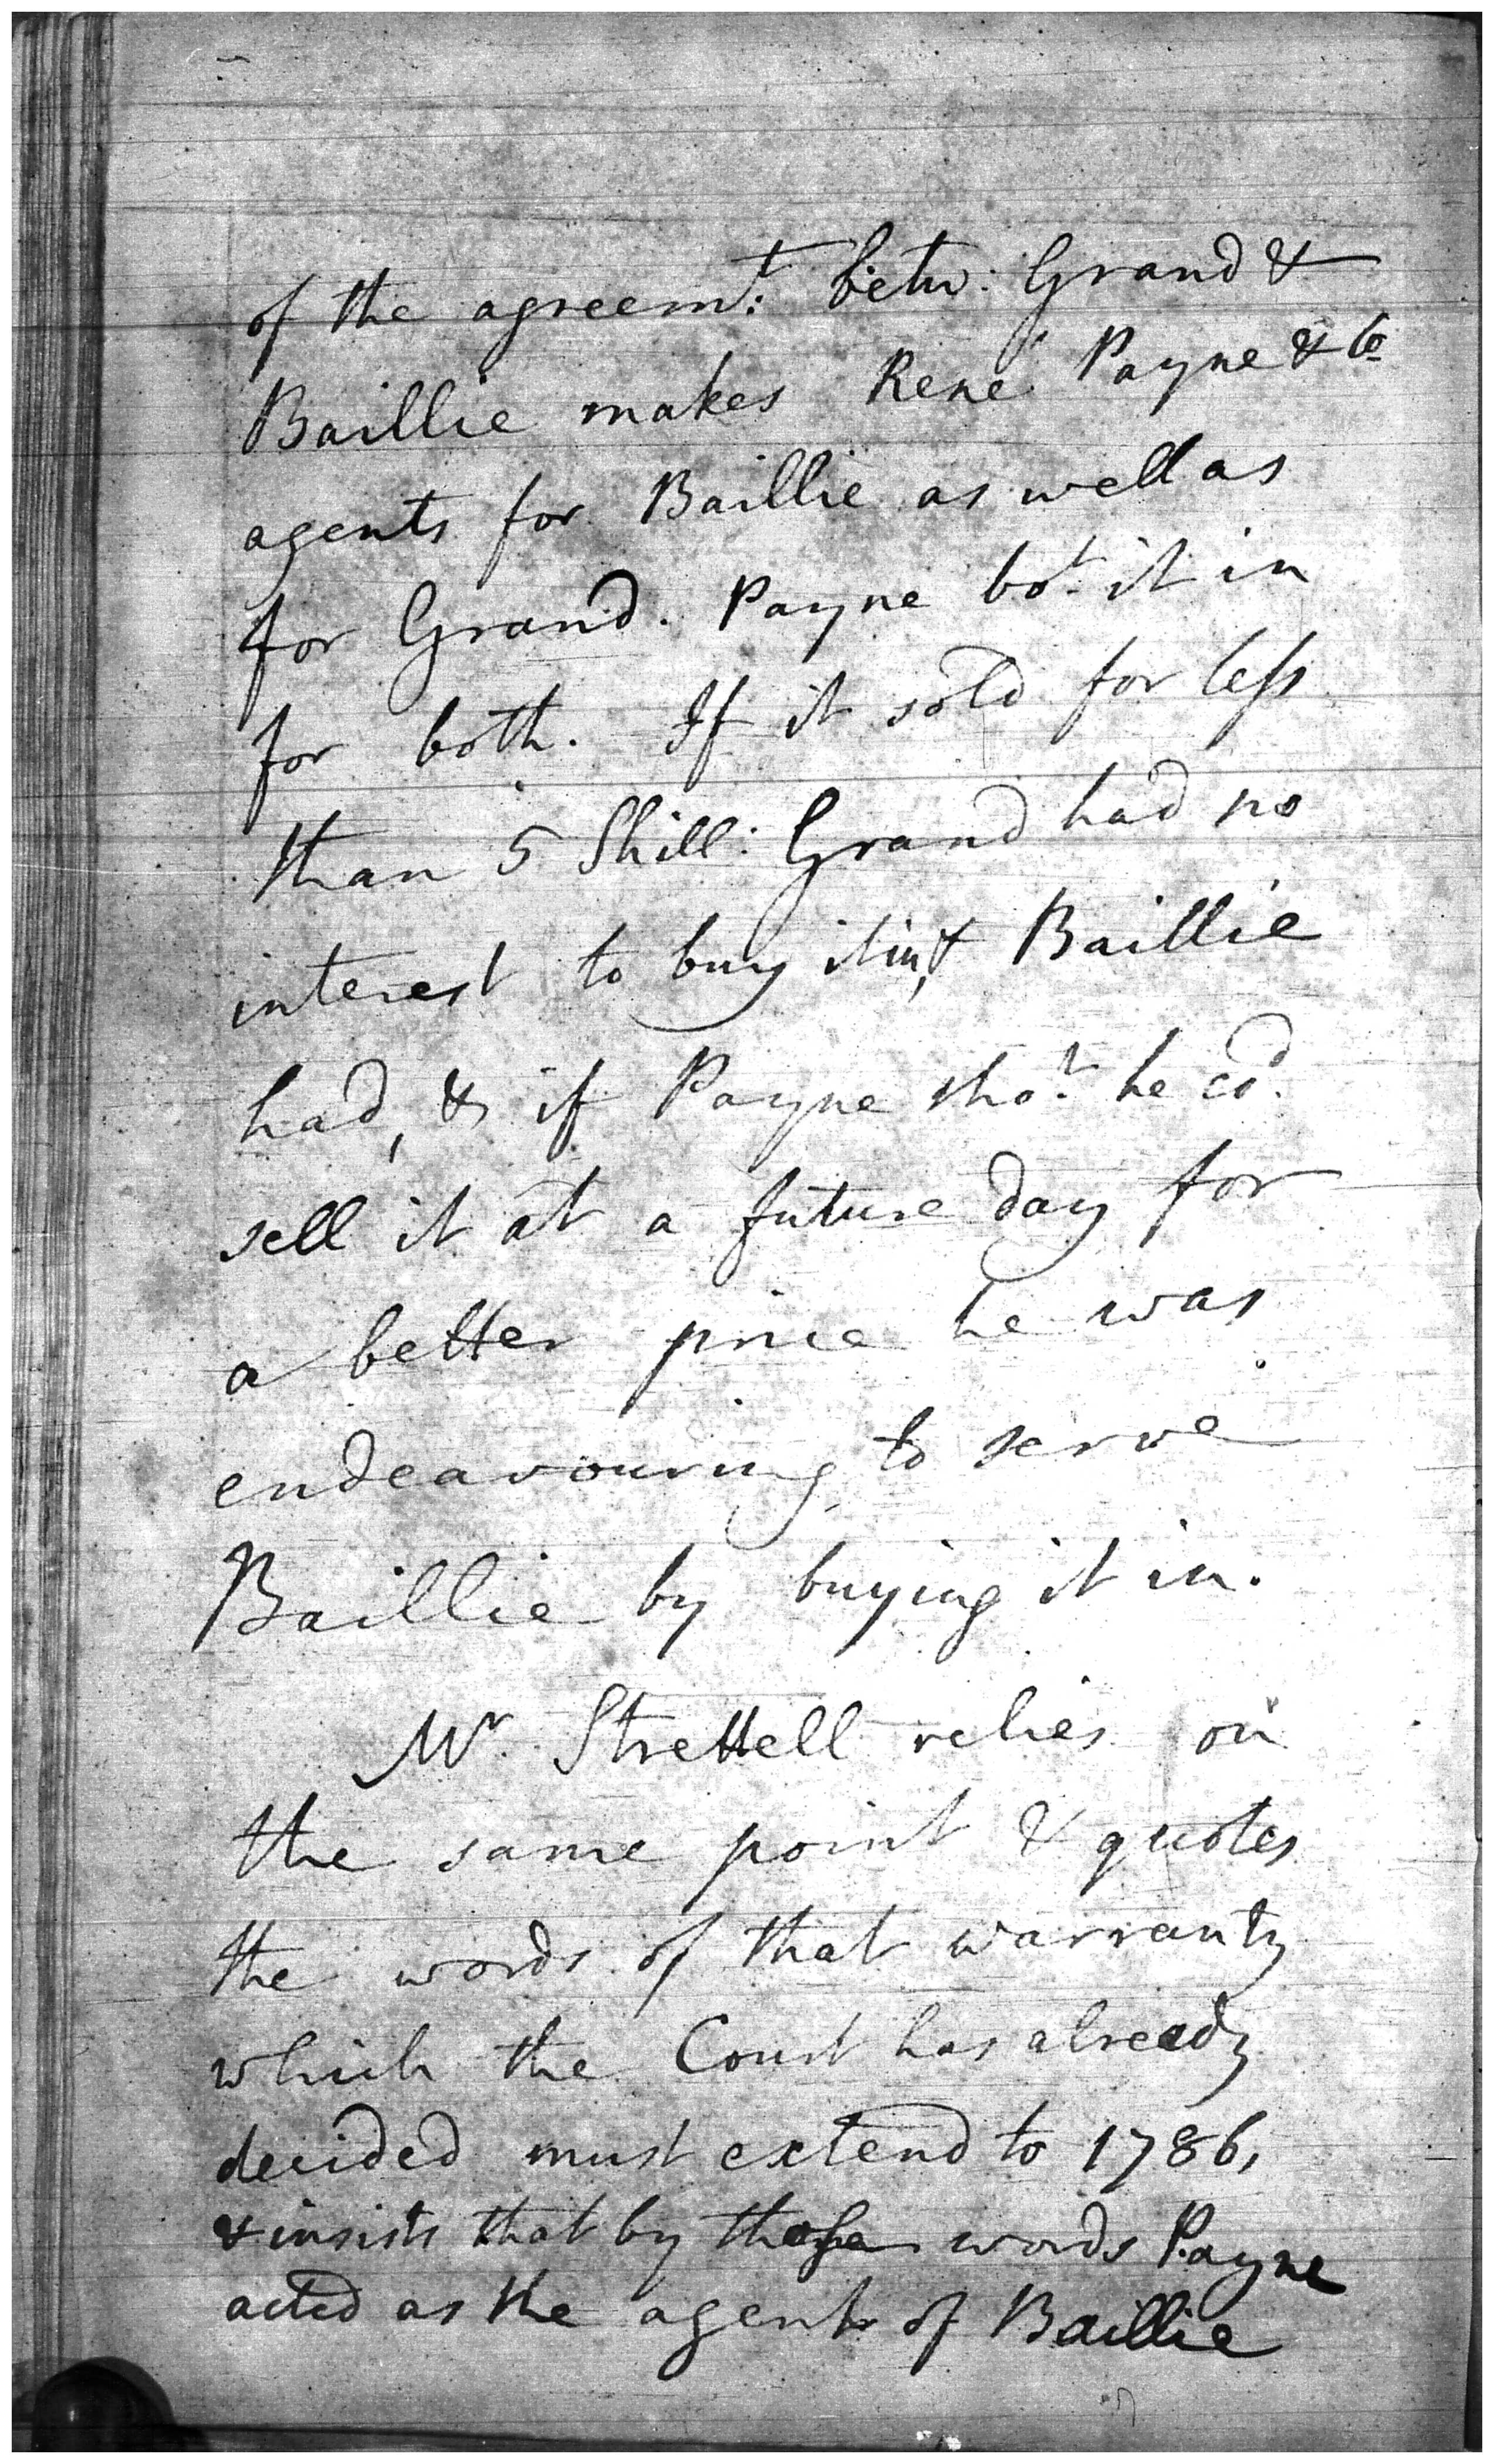 of the agreemt: betw: Grand &
Baillie makes René Payne & Co
agents for Baillie as well as
for Grand. Payne bot. it in
for both. If it sold for less
than 5 Shill: Grand had no
interest to buy it in, & Baillie
had, & if Payne thot. he cd.
sell it at a future day for
a better price he was
endeavouring to serve
Baillie by buying it in.
Mr. Strettell relies on
the same point & quotes
the words of that warranty
which the Court has already
decided must extend to 1786,
& insists that by those words Payne
acted as the agent of Baillie